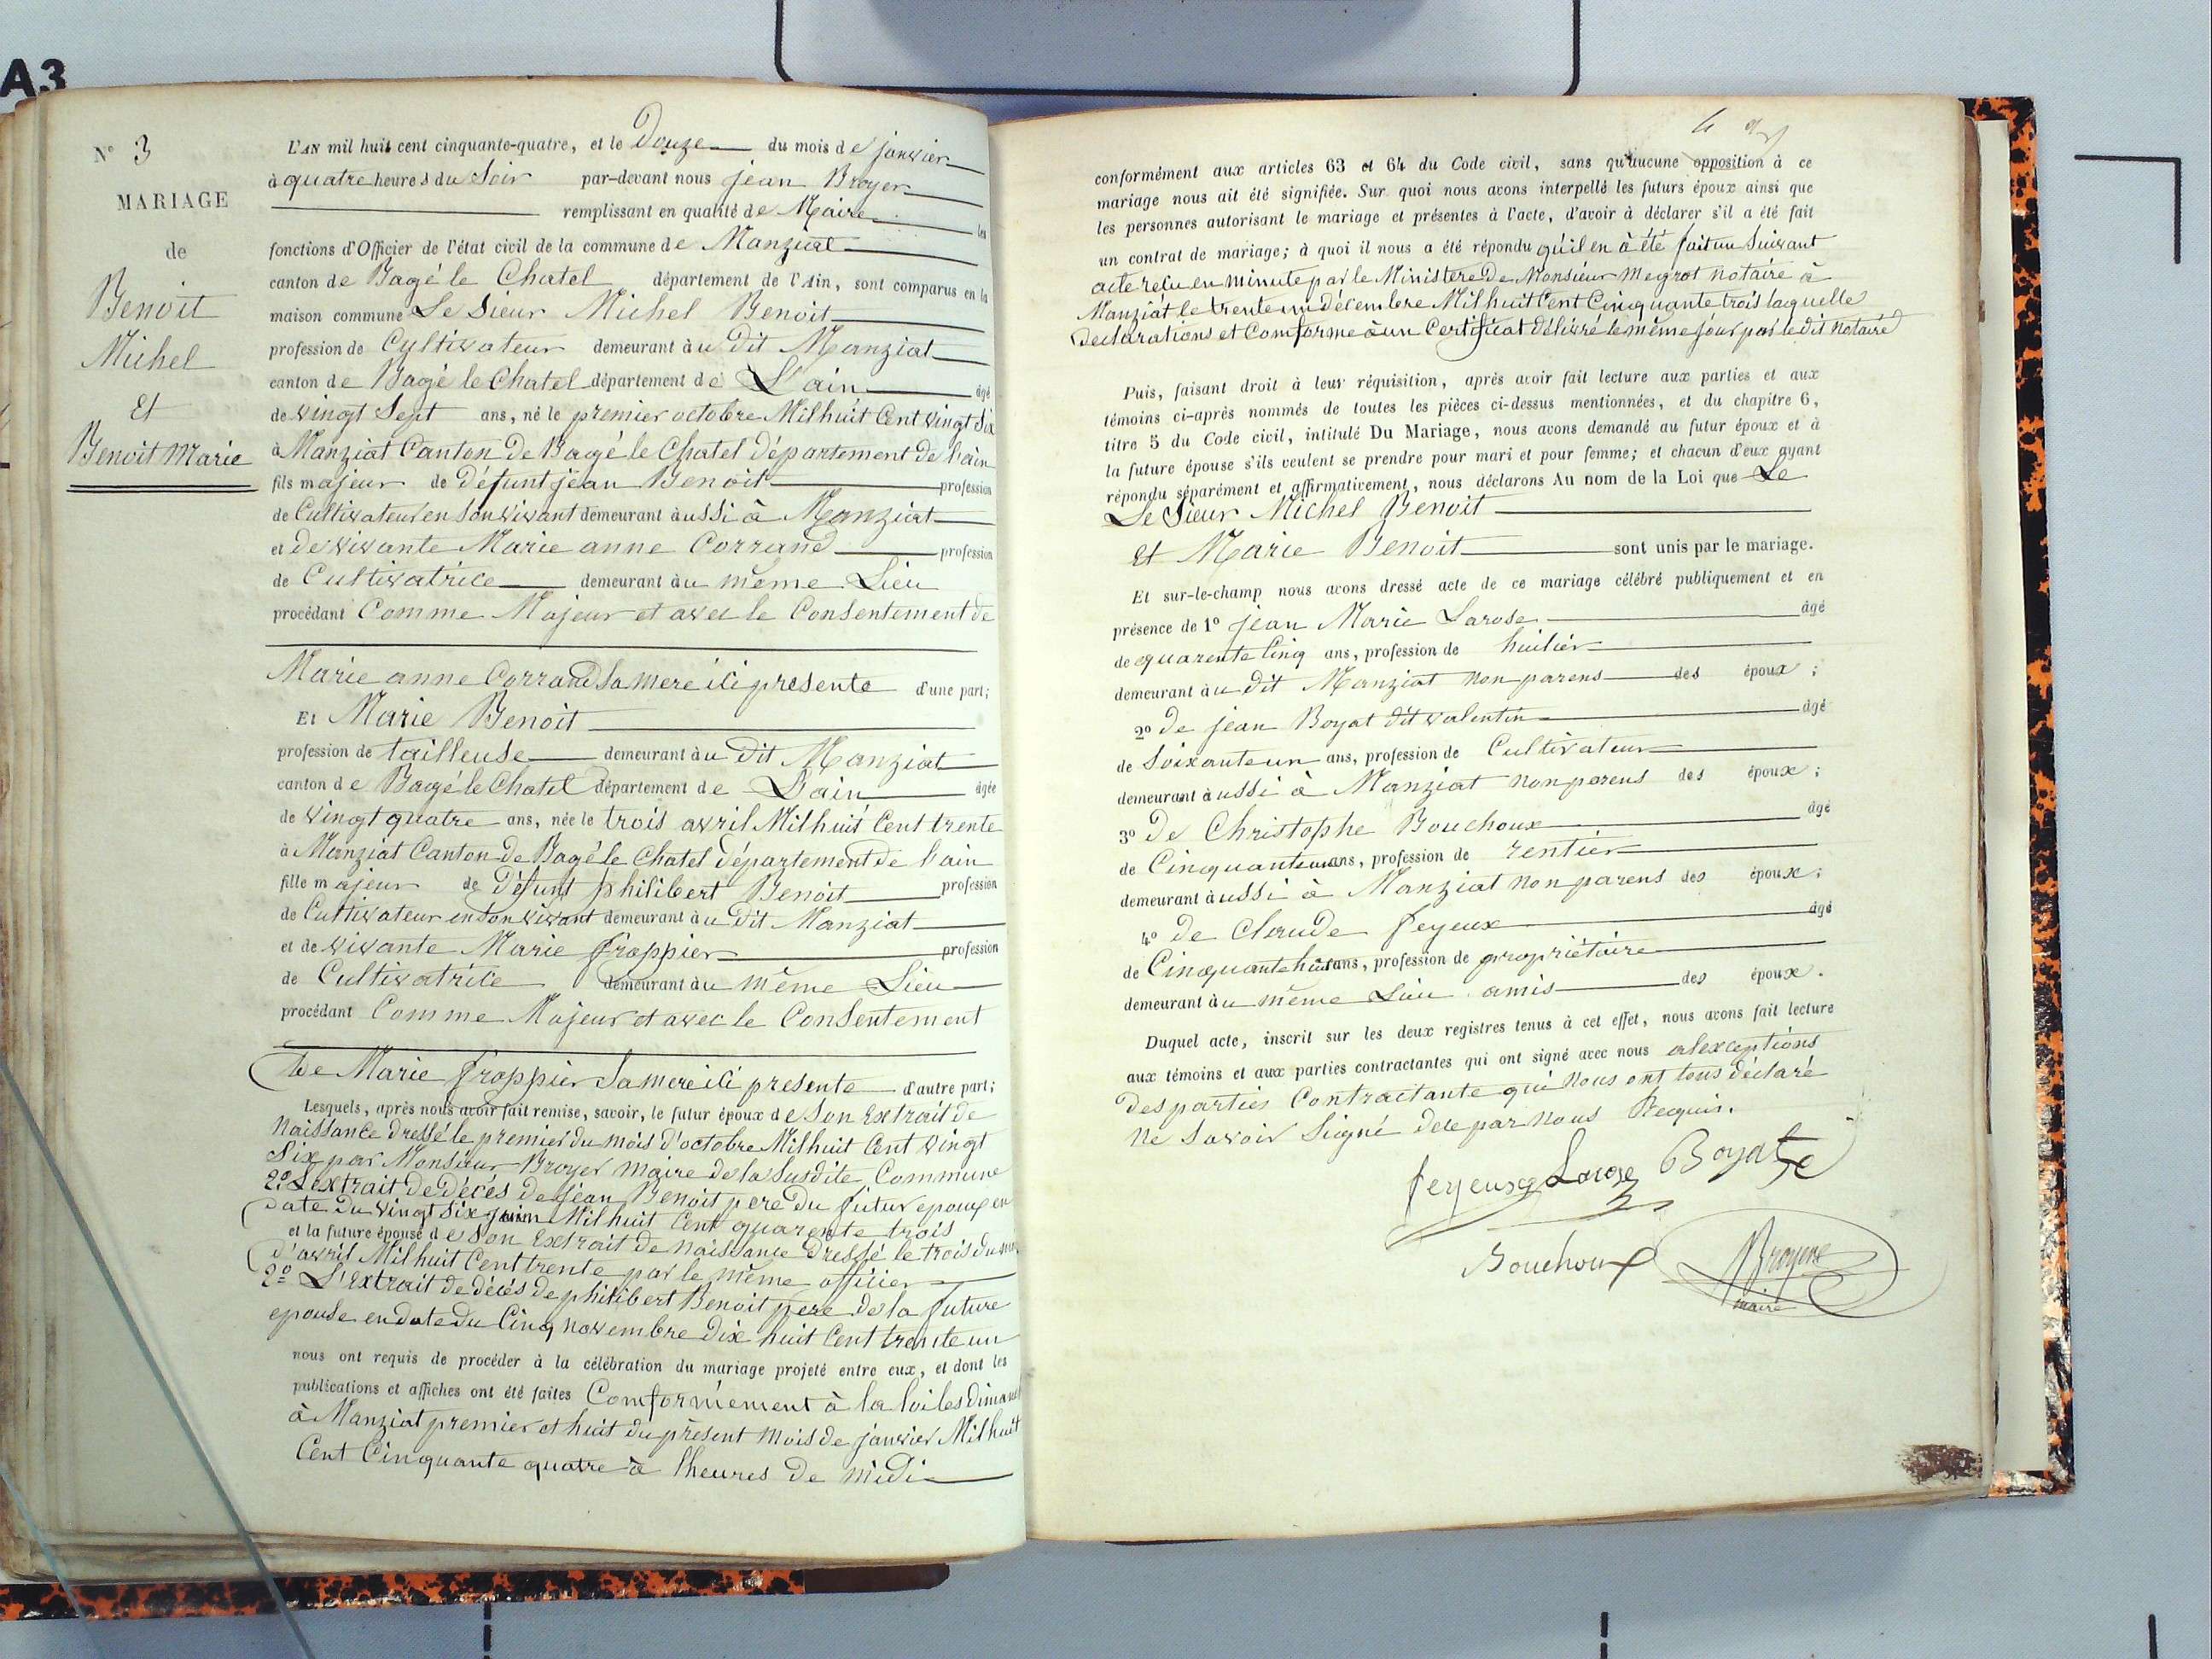 A3
N° 3
MARIAGE
de
Benoit
Michel
Et
Benoit Marie
L'AN mil huit cent cinquante-quatre, et le Douze du mois de janvier
à quatre heures du Soir par-devant nous jean Broyer
remplissant en qualité de Maire les
fonctions d'Officier de l'état civil de la commune de Manziat
canton de Bagé le Chatel département de l'Ain, sont comparus en la
maison commune Le Sieur Michel Benoit
profession de Cultivateur demeurant àu dit Manziat
canton de Bagé le Chatel département de L'ain âgé
de vingt Sept ans, né le premier octobre Mil huit Cent vingt Six
à Manziat Canton de Bagé le Chatel département de l'ain
fils majeur de défunt jean Benoit profession
de Cultivateur en Son vivant demeurant àussi à Manziat
et de vivante Marie anne Corrand profession
de Cultivatrice demeurant àu même Lieu
procédant Comme Majeur et avec le Consentement de
Marie anne Corrand Sa mere ici presente d'une part;
Et Marie Benoit
profession de tailleuse demeurant àu dit Manziat
canton de Bagé le Chatel département de L'ain âgée
de vingt quatre ans, née le trois avril Mil huit Cent trente
à Manziat Canton de Bagé le Chatel département de l'ain
fille majeur de défunt philibert Benoit profession
de Cultivateur en Son vivant demeurant àu dit Manziat
et de vivante Marie frappier profession
de Cultivatrice demeurant àu même Lieu
procédant Comme Majeur et avec le Consentement
de Marie frappier Sa mere ici presente d'autre part;
Lesquels, après nous avoir fait remise, savoir, le futur époux de Son Extrait de
Naissance dressé le premier du mois d'octobre Mil huit Cent vingt
Six par Monsieur Broyer Maire de la Susdite Commune
2° L'extrait de décés de jean Benoit pere du futur epoux en
date du vingt Six juin Mil huit Cent quarente trois
et la future épouse de Son Extrait de Naissance dressé le trois du
d'avril Mil huit Cent trente par le même officier
2° L'Extrait de décés de philibert Benoit pere de la future
epouse en date du Cinq novembre dix huit Cent trente un
nous ont requis de procéder à la célébration du mariage projeté entre eux, et dont les
publications et affiches ont été faites Conformément à la loi les
à Manziat premier et huit du présent Mois de janvier Mil huit
Cent Cinquante quatre à lheures de midi
4
conformément aux articles 63 et 64 du Code civil, sans qu'aucune opposition à ce
mariage nous ait été signifiée. Sur quoi nous avons interpellé les futurs époux ainsi que
les personnes autorisant le mariage et présentes à l'acte, d'avoir à déclarer s'il a été fait
un contrat de mariage; à quoi il nous a été répondu qu'il en à été fait un Suivant
acte reçu en minute par le Ministere de Monsieur Meyrot notaire à
Manziat le trente un décembre Mil huit Cent Cinquante trois laquelle
declarations et Comforme à un Certificat délivré le même jour par le dit notaire
Puis, faisant droit à leur réquisition, après avoir fait lecture aux parties et aux
témoins ci-après nommés de toutes les pièces ci-dessus mentionnées, et du chapitre 6,
titre 5 du Code civil, intitulé Du Mariage, nous avons demandé au futur époux et à
la future épouse s'ils veulent se prendre pour mari et pour femme; et chacun d'eux ayant
répondu séparément et affirmativement, nous déclarons Au nom de la Loi que Le
Le Sieur Michel Benoit
Et Marie Benoit sont unis par le mariage.
Et sur-le-champ nous avons dressé acte de ce mariage célébré publiquement et en
présence de 1° jean Marie Larose âgé
de quarente Cinq ans, profession de huilier
demeurant àu dit Manziat non parens des époux;
2° de jean Boyat dit valentin âgé
de Soixante un ans, profession de Cultivateur
demeurant àussi à Manziat non parens des époux;
3° de Christophe Bouchoux âgé
de Cinquante ans, profession de rentier
demeurant àussi à Manziat non parens des époux;
4° de Claude feyeux âgé
de Cinquante huit ans, profession de propriétaire
demeurant àu même Lieu amis des époux.
Duquel acte, inscrit sur les deux registres tenus à cet effet, nous avons fait lecture
aux témoins et aux parties contractantes qui ont signé avec nous alexceptions
des parties Contractante qui nous ont tous déclaré
ne Savoir Signé de ce par nous Requis.
feyeux Larose Boyat
Bouchoux Broyer
maire